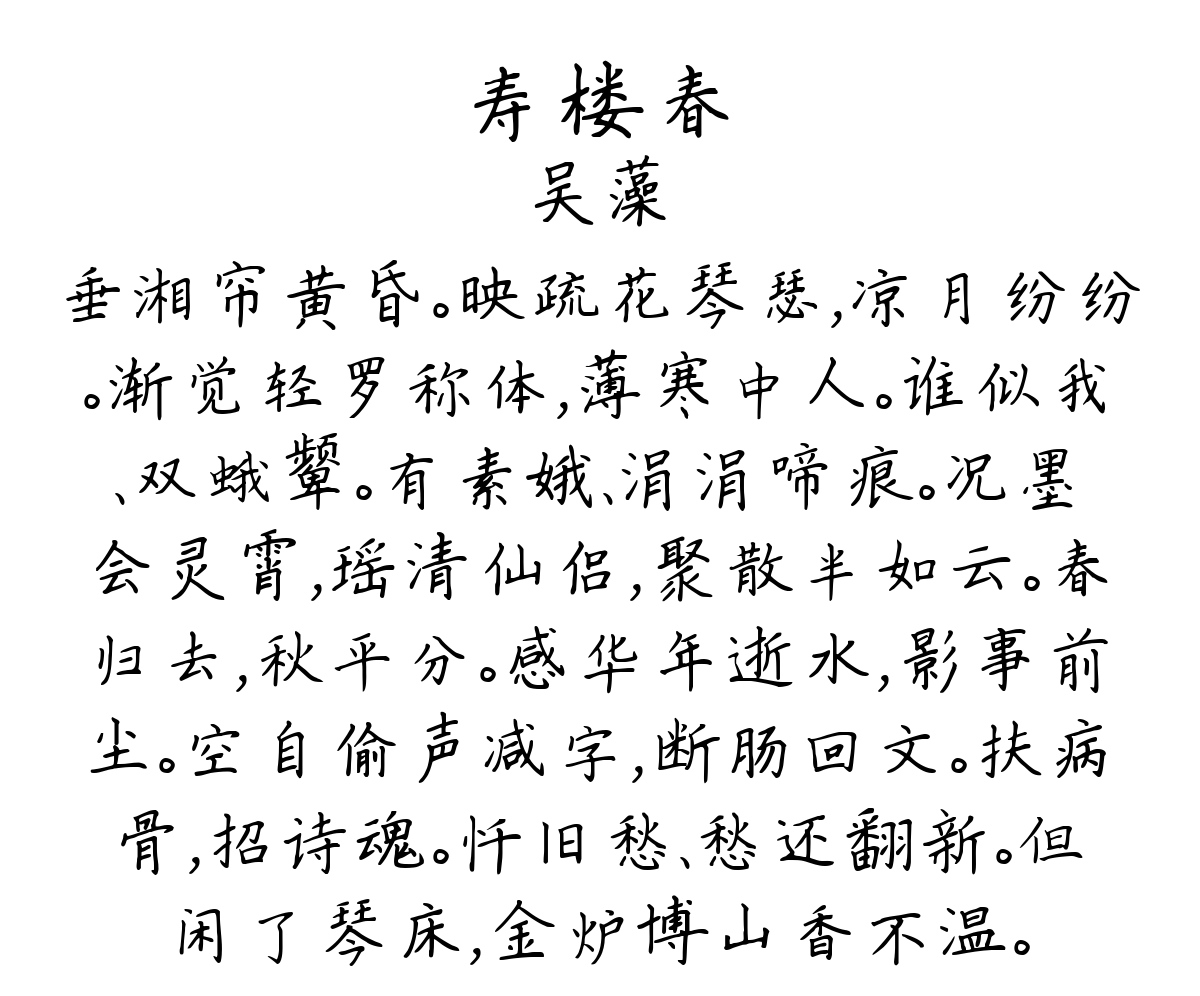 寿楼春
吴藻
垂湘帘黄昏。映疏花琴瑟,凉月纷纷
。渐觉轻罗称体,薄寒中人。谁似我
、双蛾颦。有素娥、涓涓啼痕。况墨
会灵霄,瑶清仙侣,聚散半如云。春
归去,秋平分。感华年逝水,影事前
尘。空自偷声减字,断肠回文。扶病
骨,招诗魂。忏旧愁、愁还翻新。但
闲了琴床,金炉博山香不温。